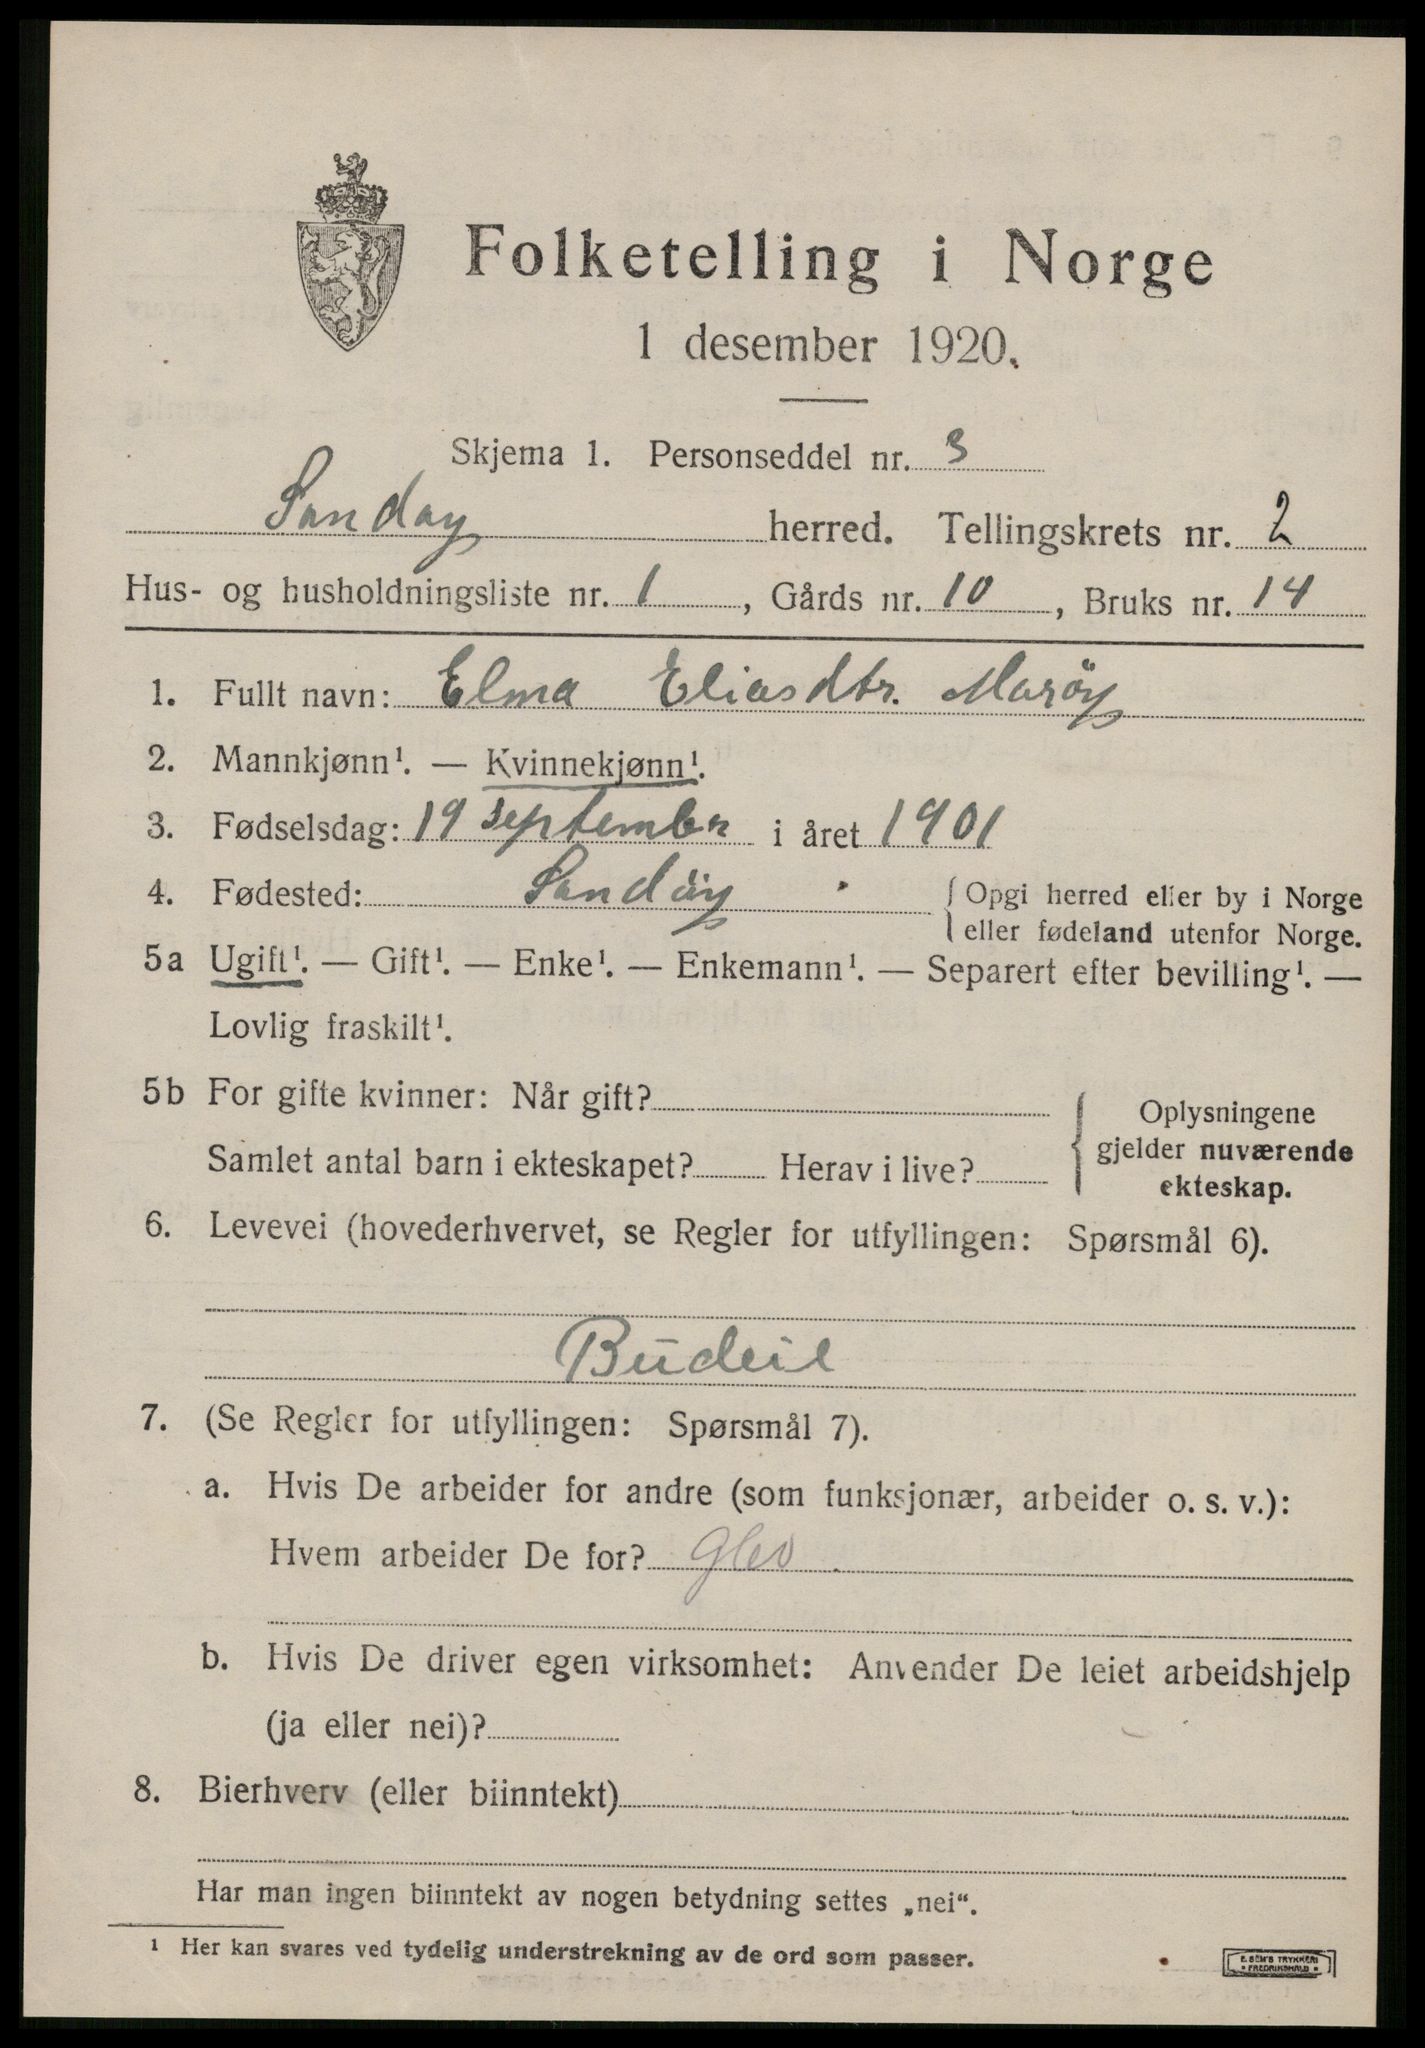 Folketelling i Norge
1 desember 1920.
Skjema 1. Personseddel nr. 3
Sandøy herred. Tellingskrets nr. 2
Hus- og husholdningsliste nr. 1, Gårds nr. 10, Bruks nr. 14
1. Fullt navn: Elma Eliasdtr. Marøy
2. Mannkjønn¹. — Kvinnekjønn¹.
3. Fødselsdag: 19 september i året 1901
4. Fødested: Sandöy { Opgi herred eller by i Norge
eller fødeland utenfor Norge.
5a Ugift¹. — Gift¹. — Enke¹. — Enkemann¹. — Separert efter bevilling¹. —
Lovlig fraskilt¹.
5b For gifte kvinner: Når gift?
Samlet antal barn i ekteskapet? Herav i live?
{ Oplysningene
gjelder nuværende
ekteskap.
6. Levevei (hovederhvervet, se Regler for utfyllingen: Spørsmål 6).
Budeie
7. (Se Regler for utfyllingen: Spørsmål 7).
a. Hvis De arbeider for andre (som funksjonær, arbeider o. s. v.):
Hvem arbeider De for?
b. Hvis De driver egen virksomhet: Anvender De leiet arbeidshjelp
(ja eller nei)?
8. Bierhverv (eller biinntekt)
Har man ingen biinntekt av nogen betydning settes „nei“.
¹ Her kan svares ved tydelig understrekning av de ord som passer.
E. SEM'S TRYKKERI
• FREDRIKSHALD •